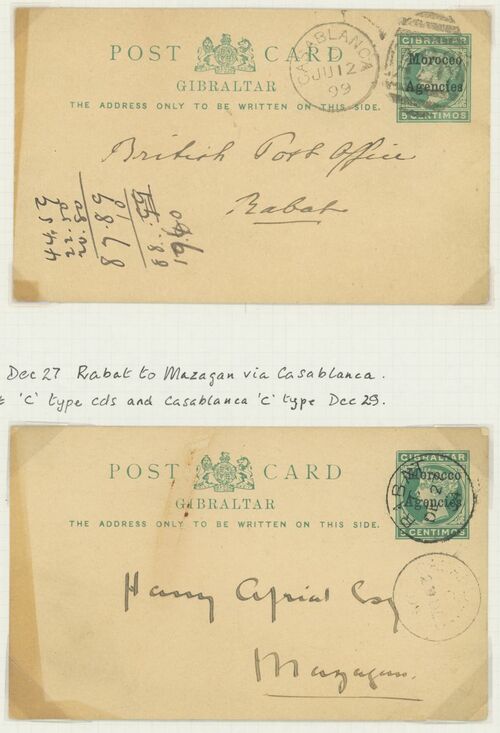 POST CARD
GIBRALTAR
THE ADDRESS ONLY TO BE WRITTEN ON THIS SIDE.
CASABLANCA
JU 12
99
GIBRALTAR
Morocco
Agencies
5 CENTIMOS
British Post Office
Rabat
Dec 27 Rabat to Mazagan via Casablanca.
'C' type cds and Casablanca 'C' type Dec 29.
POST CARD
GIBRALTAR
THE ADDRESS ONLY TO BE WRITTEN ON THIS SIDE.
GIBRALTAR
Morocco
Agencies
5 CENTIMOS
RABAT
DE 27
Harry
Esq
Mazagan.